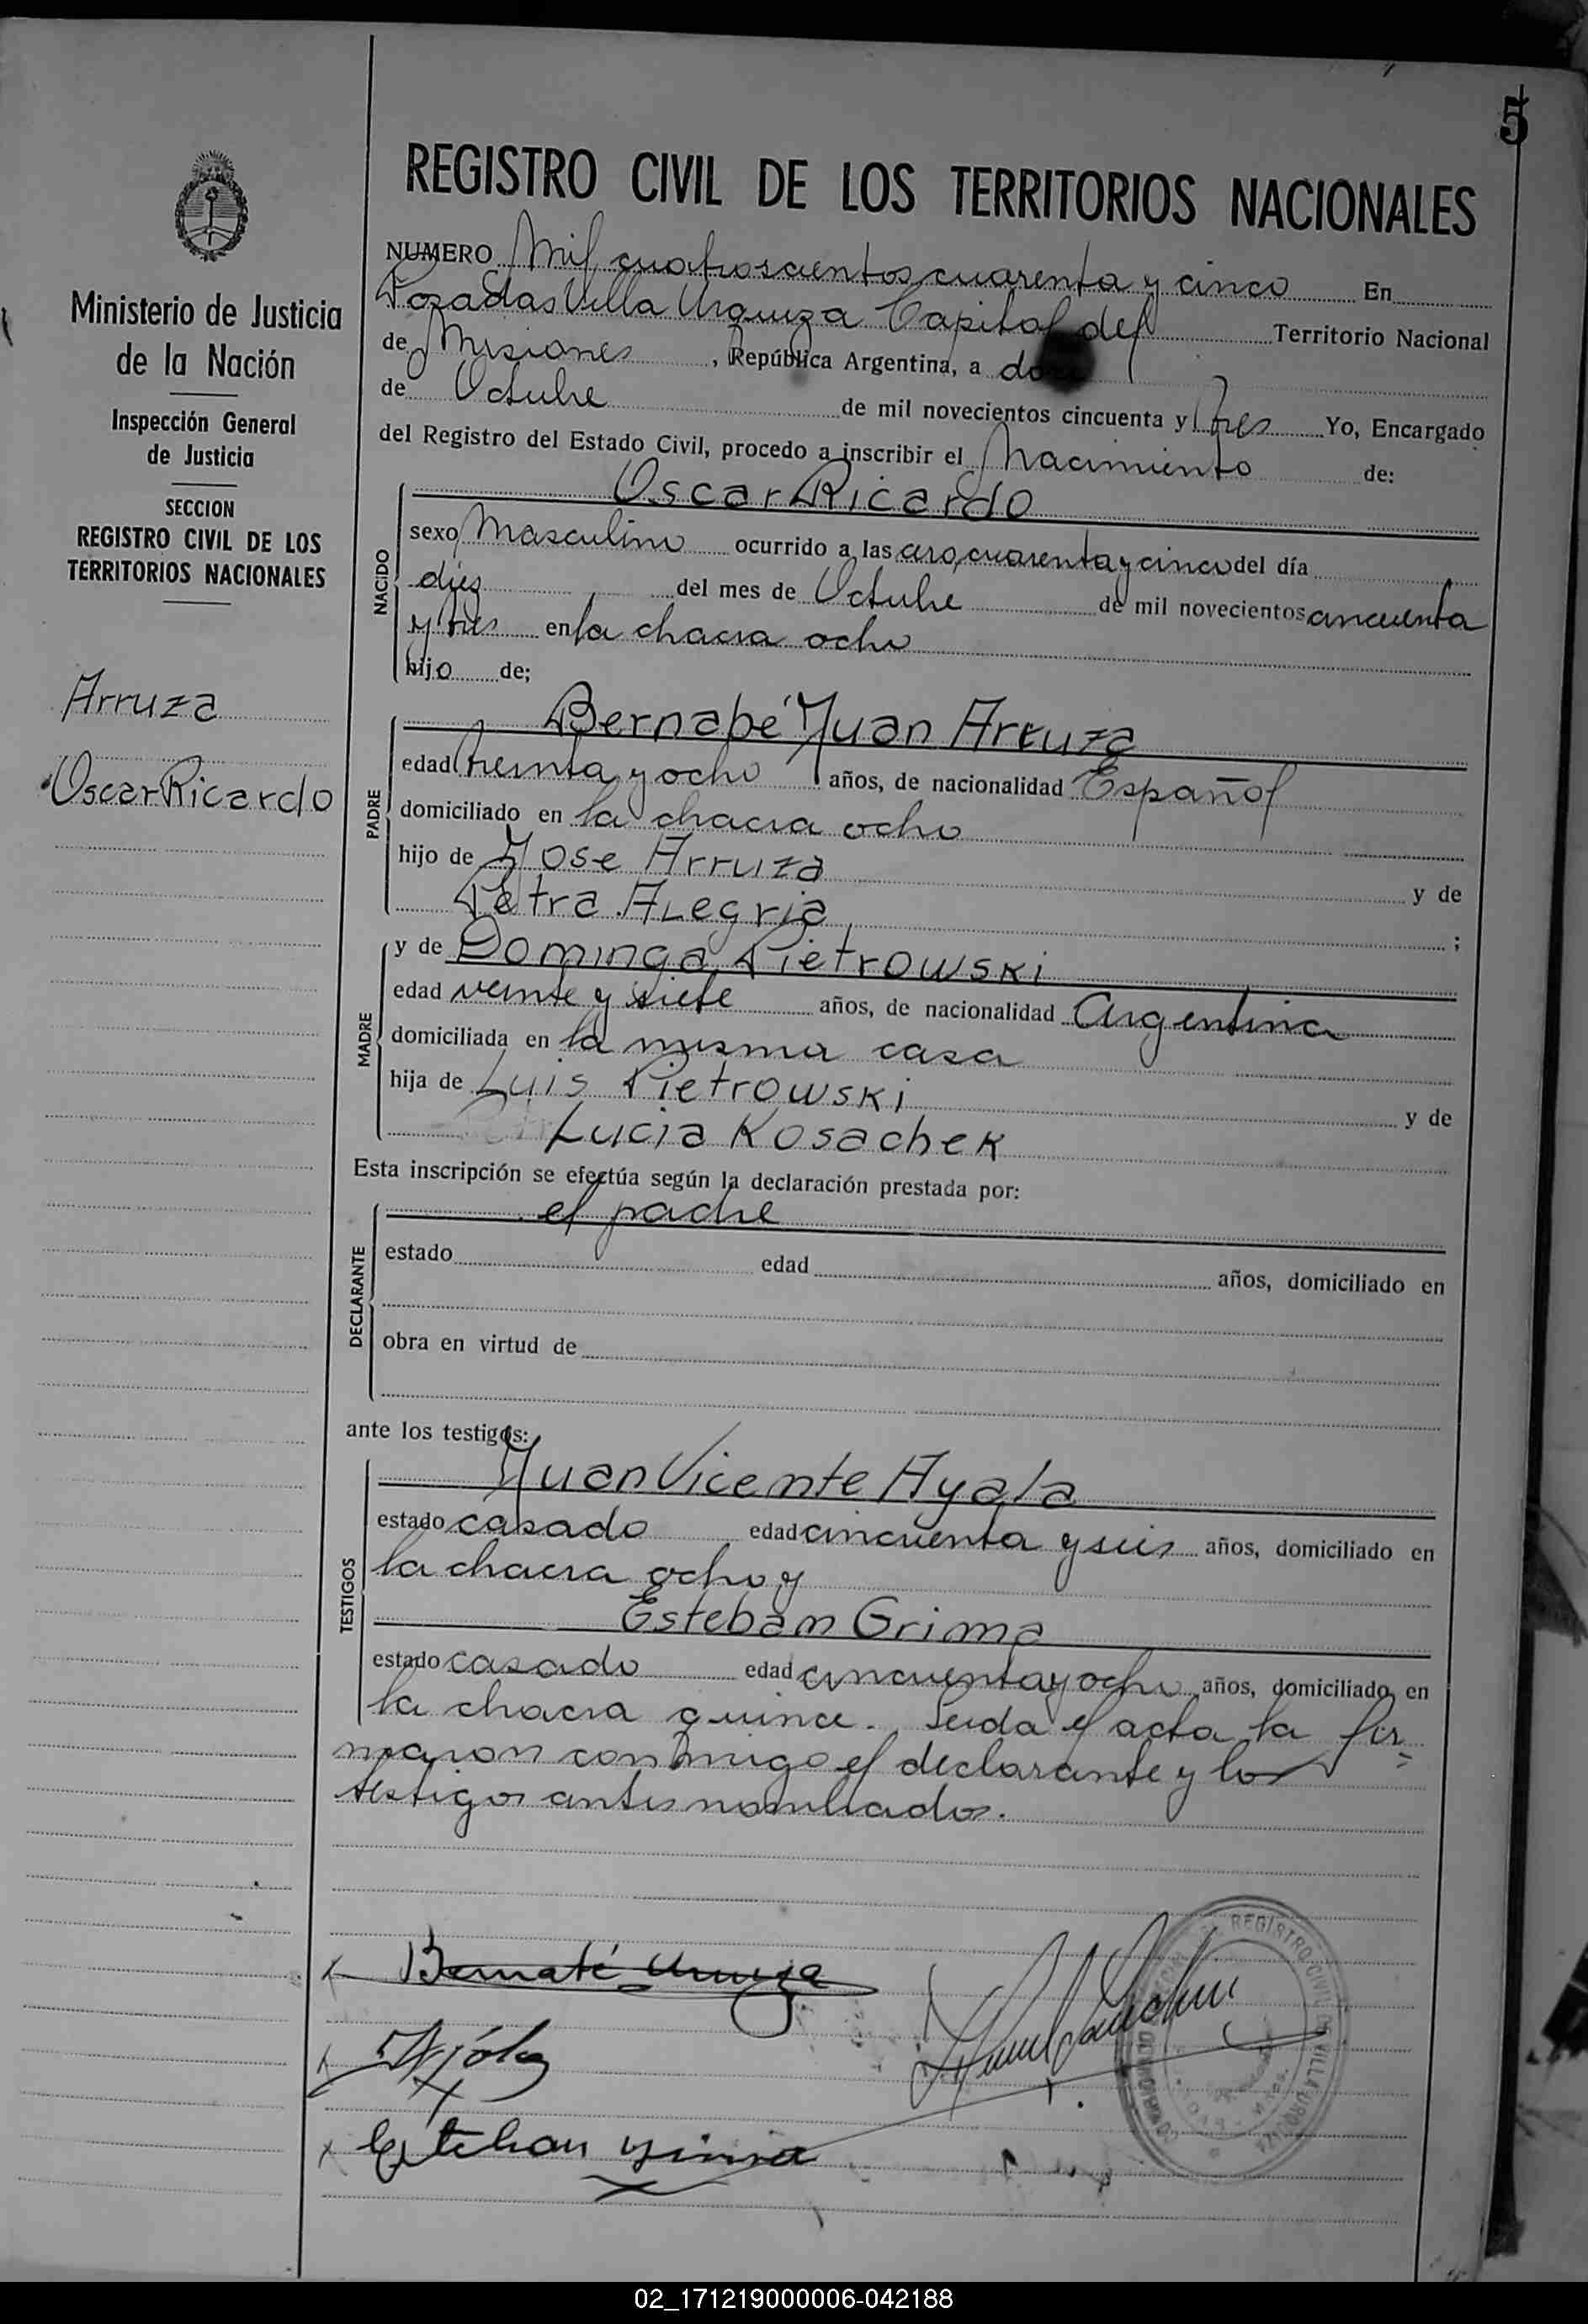 5
REGISTRO CIVIL DE LOS TERRITORIOS NACIONALES
Ministerio de Justicia
de la Nación
Inspección General
de Justicia
SECCION
REGISTRO CIVIL DE LOS
TERRITORIOS NACIONALES
Arruza
Oscar Ricardo
NUMERO Mil cuatroscientos cuarenta y cinco En
Posadas Villa Urquiza Capital del Territorio Nacional
de Misiones, República Argentina, a doce
de Octubre de mil novecientos cincuenta y tres Yo, Encargado
del Registro del Estado Civil, procedo a inscribir el Nacimiento de:
NACIDO
Oscar Ricardo
sexo Masculino ocurrido a las cero, cuarenta y cinco del día
diez del mes de Octubre de mil novecientos cincuenta
y tres en la chacra ocho
hijo de;
PADRE
Bernabé Juan Arruza
edad treinta y ocho años, de nacionalidad Español
domiciliado en la chacra ocho
hijo de Jose Arruza y de
Petra Alegria ;
MADRE
y de Dominga Pietrowski
edad veinte y siete años, de nacionalidad Argentina
domiciliada en la misma casa
hija de Luis Pietrowski y de
Lucia Kosachek
Esta inscripción se efectúa según la declaración prestada por:
DECLARANTE
el padre
estado edad años, domiciliado en
obra en virtud de
ante los testigos:
TESTIGOS
Juan Vicente Ayala
estado casado edad cincuenta y seis años, domiciliado en
la chacra ocho y
Esteban Grima
estado casado edad cincuenta y ocho años, domiciliado en
la chacra quince. Leida el acta la fir=
maron conmigo el declarante y los
testigos antes nombrados.
Bernabé Arruza
Esteban Grima
REGISTRO CIVIL DE VILLA URQUIZA
02_171219000006-042188